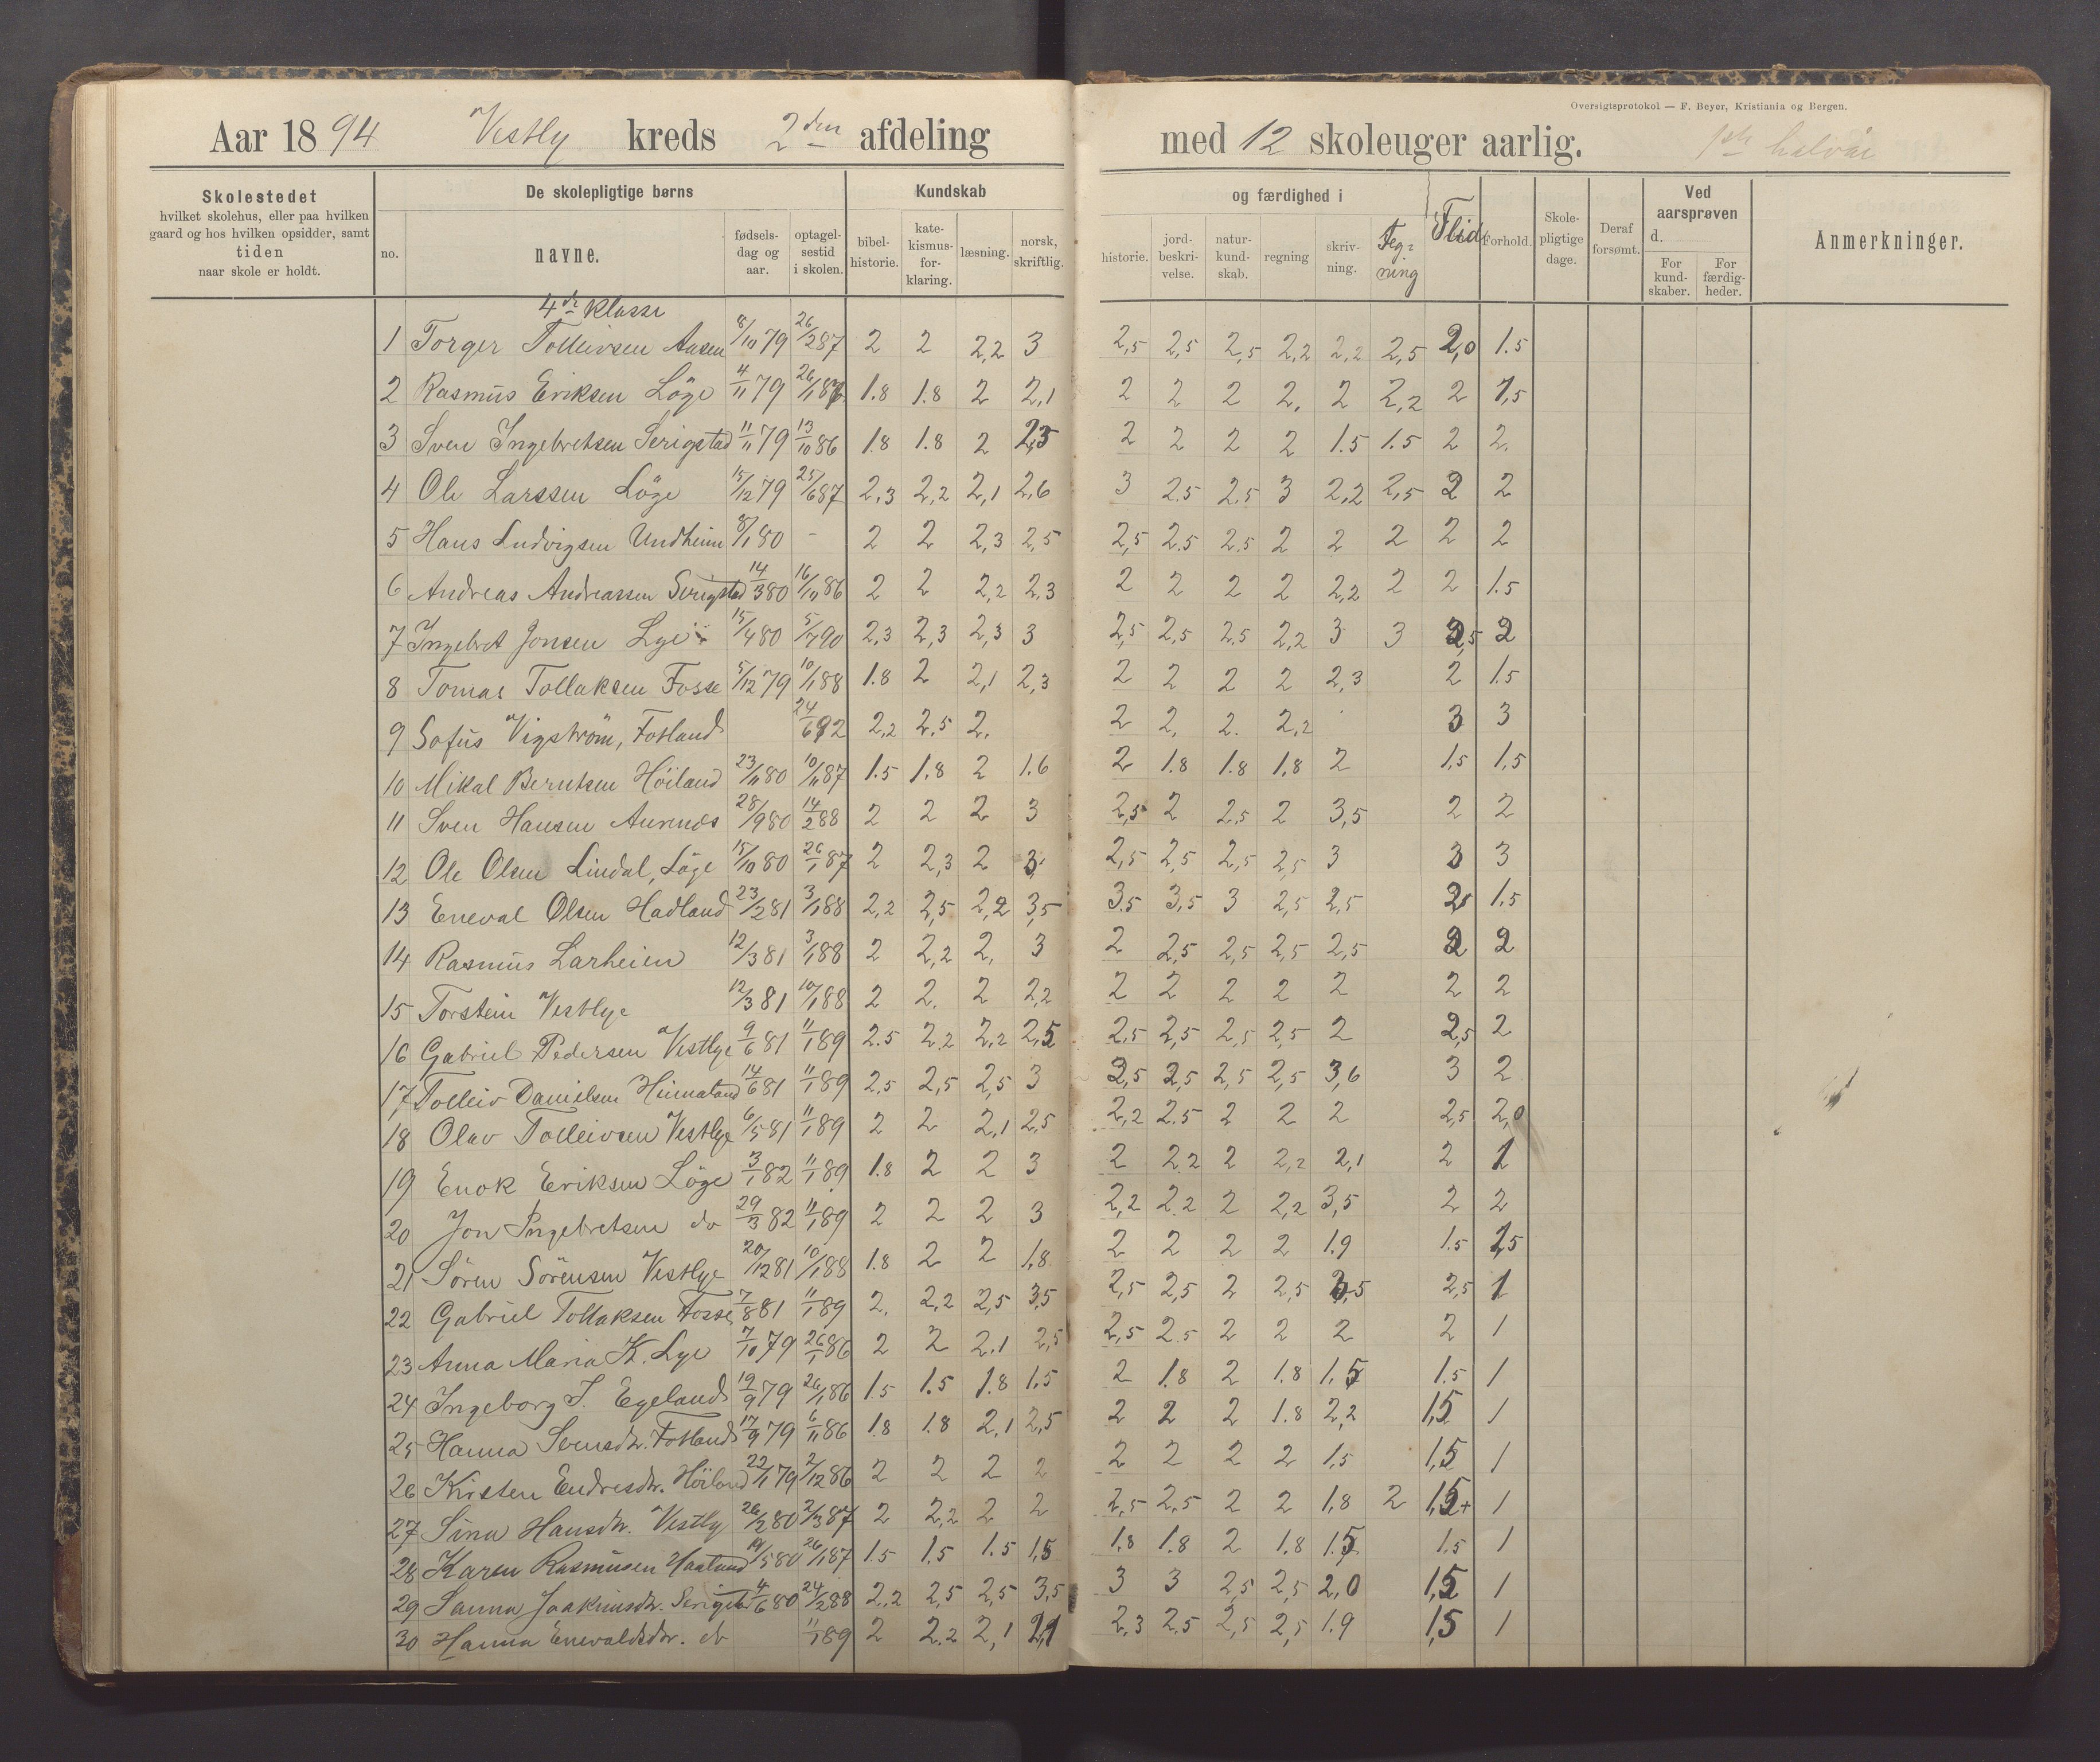 Oversigtsprotokol — F. Beyer, Kristiania og Bergen.
Aar 1894 Vestly kreds 2den afdeling med 12 skoleuger aarlig. 1ste halvår
Skolestedet hvilket skolehus, eller paa hvilken gaard og hos hvilken opsidder, samt tiden naar skole er holdt.
De skolepligtige børns
no. navne. fødsels-dag og aar. optagel-sestid i skolen.
Kundskab og færdighed i
bibel-historie. kate-kismus-for-klaring. læsning. norsk, skriftlig. historie. jord-beskri-velse. natur-kund-skab. regning skriv-ning. Teg-ning Flid Forhold. Skole-pligtige dage. Deraf forsømt.
Ved aarsprøven d.
For kund-skaber. For færdig-heder.
Anmerkninger.
4de Klasse
1 Torger Tolleivsen Aasen 8/10 79 26/2 87 2 2 2,2 3 2,5 2,5 2,5 2,2 2,2 2,5 2,0 1.5
2 Rasmus Eriksen Löge 4/11 79 26/1 87 1.8 1.8 2 2,1 2 2 2 2. 2 2,2 2 1,5
3 Sven Ingebretsen Serigstad 11/11 79 13/10 86 1.8 1.8 2 2,5 2 2 2 2 1.5 1.5 2 2.
4 Ole Larssen Löge 15/12 79 25/6 87 2,3 2,2 2,1 2,6 3 2.5 2.5 3 2,2 2,5 2 2
5 Hans Ludvigsen Undheim 8/1 80 - 2 2 2,3 2,5 2,5 2.5 2.5 2 2 2 2 2
6 Andreas Andreassen Serigstad 14/3 80 16/11 86 2 2 2,2 2,3 2 2 2 2 2,2 2 2 1.5
7 Ingebret Jonsen Lye 15/4 80 5/7 90 2,3 2,3 2,3 3 2,5 2,5 2,5 2,2 3 3 2,5 2
8 Tomas Tollaksen Fosse 5/12 79 10/1 88 1.8 2 2,1 2,3 2 2 2 2 2,3 2 1.5
9 Sofus Vigström, Fotland 24/6 92 2,2 2,5 2. 2 2. 2. 2,2 3 3
10 Mikal Berntsen Höiland 23/11 80 10/11 87 1.5 1.8 2 1.6 2 1.8 1.8 1,8 2 1,5 1,5
11 Sven Hansen Aurenes 28/9 80 14/2 88 2 2 2 3 2,5 2 2,5 2 3,5 2 2
12 Ole Olsen Lindal, Löge 15/10 80 26/1 87 2 2,3 2 3 2,5 2,5 2,5 2,5 3 3 3
13 Eneval Olsen Hadland 23/2 81 3/1 88 2,2 2,5 2,2 3,5 3.5 3,5 3 2,5 2,5 2,5 1.5
14 Rasmus Larheien 12/3 81 3/1 88 2 2,2 2. 3 2 2,5 2,5 2,5 2,5 2 2
15 Torstein Vestlye 12/3 81 10/1 88 2 2. 2 2,2 2 2 2 2 2 2 2
16 Gabriel Pedersen Vestlye 9/6 81 11/1 89 2.5 2.2 2,2 2,5 2,5 2,5 2,5 2,5 2 2,5 2
17 Tolleiv Danielsen Heimaland 14/6 81 11/1 89 2,5 2,5 2,5 3 2,5 2,5 2,5 2,5 3,6 3 2
18 Olav Tolleivsen Vestlye 6/5 81 11/1 89 2 2 2,1 2,5 2,2 2.5 2 2 2 2,5 2,0
19 Enok Eriksen Löge 3/1 82 11/1 89 1.8 2 2 3 2 2.2 2 2,2 2,1 2 1
20 Jon Ingebretsen do 29/3 82 11/1 89 2 2 2 3 2,2 2.2 2 2,2 3,5 2 2
21 Sören Sörensen Vestlye 20/12 81 10/1 88 1.8 2 2 1,8 2 2 2 2 1.9 1.5 1,5
22 Gabriel Tollaksen Fosse 7/8 81 11/1 89 2. 2,2 2,5 3,5 2,5 2,5 2 2,5 3,5 2,5 1
23 Anna Maria K. Lye 7/10 79 26/1 86 2 2 2.1 2,5 2,5 2.5 2 2 2 2 1
24 Ingeborg J. Egeland 19/9 79 26/1 86 1.5 1.5 1.8 1,5 2 1.8 2 1.8 1.5 1.5 1
25 Hanna Svensdtr. Fotland 17/9 79 6/11 86 1.8 1.8 2,1 2,5 2 2 2 1.8 2,2 1,5 1
26 Kirsten Endresdtr. Höiland 22/1 79 2/12 86 2 2 2 2 2 2 2 2 1,5 1,5 1
27 Sina Hansdtr. Vestly 26/2 80 2/3 87 2 2,2 2 2 2,5 2.5 2 2 1,8 2 1,5+ 1
28 Karen Rasmusen Haaland 19/5 80 26/1 87 1.5 1.5 1.5 1,5 1.8 1.8 2 1.8 1.5 1.5 1
29 Sanna Joakimsdtr. Serigst. 4/6 80 24/2 88 2,2 2,5 2,5 3,5 3 3 2,5 2,5 2,0 1,5 1
30 Hanna Enevaldsdtr. do 11/1 89 2 2.2 2,1 2,1 2,3 2.5 2,5 2,5 1.9 1,5 1